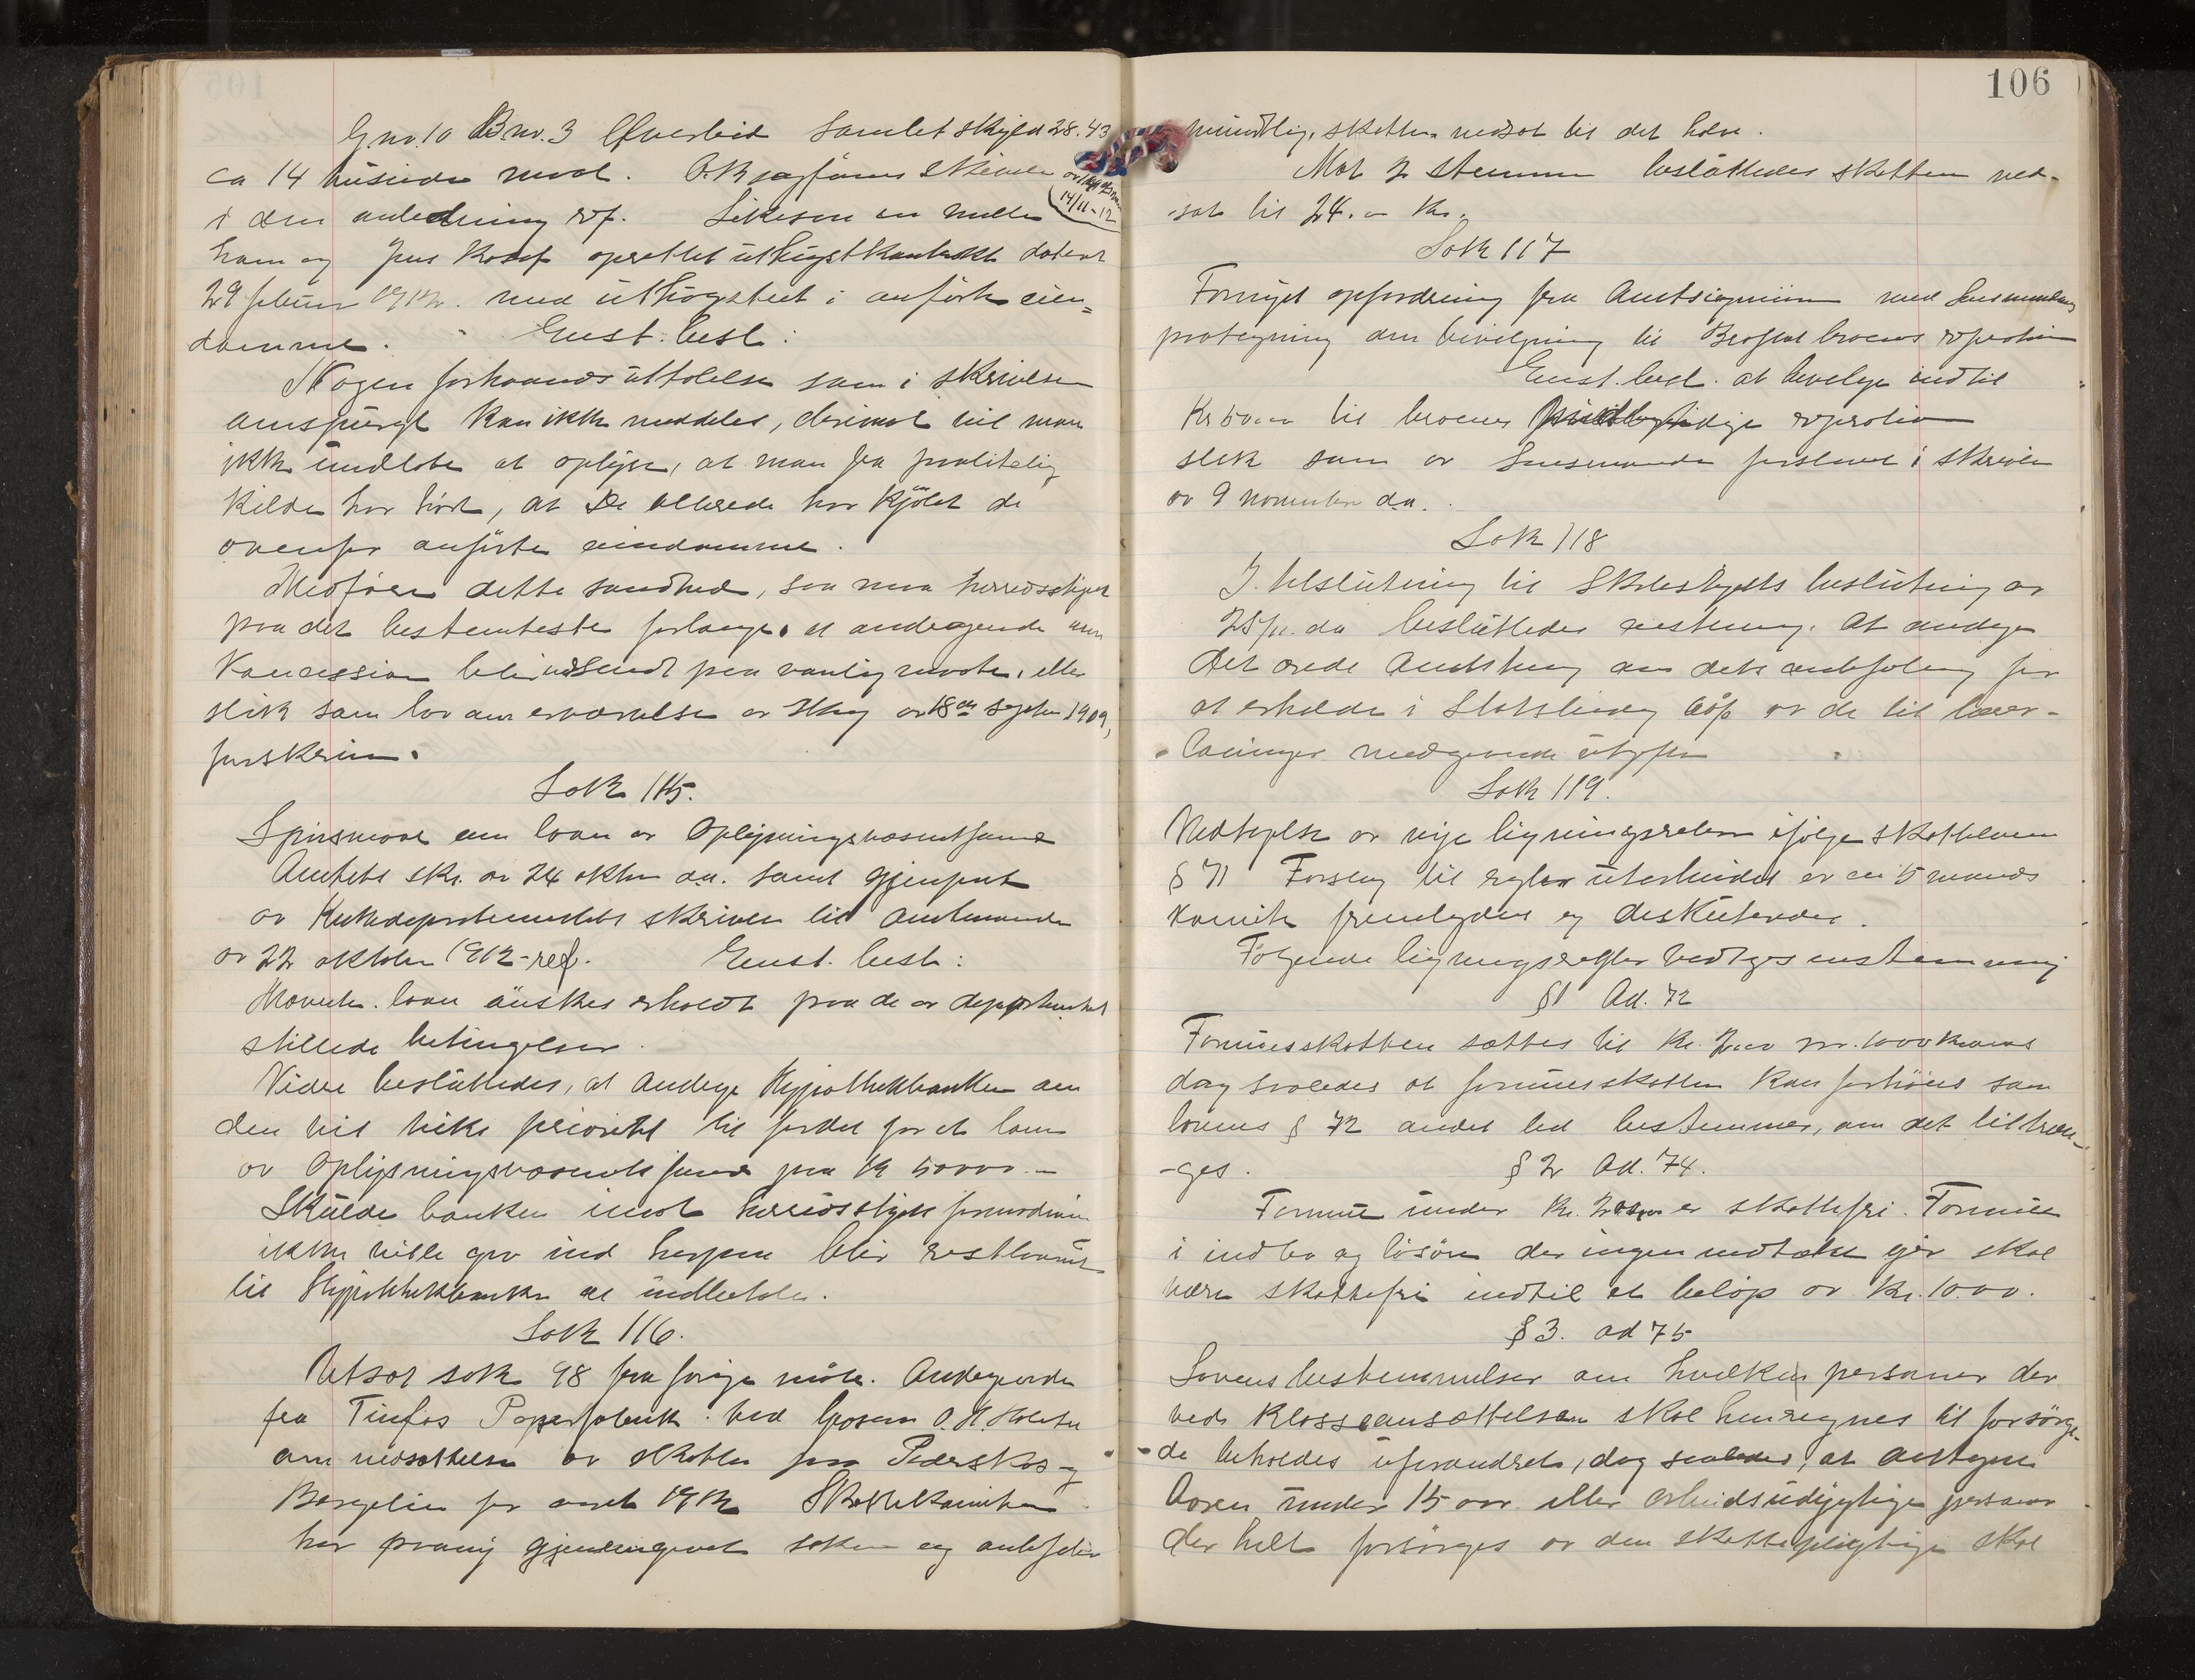 Gnr. 10 Bnr. 3 Øverbø Samlet skyld 28.43
ca 14 tusinde maal. O.R. sagfører skrivelse av
14/11-12
i den anledning ref. Likesom en mellem
ham og Jens opprettet uthugstkontrakt datert
29 februar 1912 med uthogstret i anførte eien-
domme. Enst. besl:
Nogen forhaandsuttalelse som i skrivelsen
omspurgt kan ikke meddeles, derimot vil man
ikke undlate at oplyse, at man fra paalitelig
kilde har hørt, at De allerede har kjøbt de
ovenfor anførte eiendomme.
Medfører dette sandhed, saa maa herredsstyret
paa det bestemteste forlange, at andragende om
Koncession blir indsendt paa vanlig maate, eller
slik som lov om ervervelse av skog av 18de septbr 1909,
foreskriver.
Sak 115.
Spørsmaal om laan av Oplysningsvæsenets fond
Amtets skr. av 24 oktbr d.a. samt gjenpart
av Kirkedepartementets skrivelse til Amtmanden
av 22 oktober 1912 - ref. Enst. besl:
laan ønskes erholdt paa de av departementet
stillede betingelser.
Videre besluttedes, at andrage Hypothekbanken om
den vil vike prioritet til fordel for et laan
av Oplysningsvæsenets fond paa kr 50000.-
Skulde banken imot herredsstyrets formodning
ikke ville gaa ind herpaa blir restlaanet
til Hypothekbanken at indbetale.
Sak 116.
Utsat sak 98 fra forrige møte. Andragende
fra Tinfos Papirfabrik ved O. H. Holta
om nedsættelse av skatten paa Pederskos og
for aaret 1912 Skattekomiteen
har gjennemgaat saken og anbefaler
106
skatten nedsat til det halve.
Mot 2 stemmer besluttedes skatten ned-
sat til 24.- kr.
Sak 117
Fornyet opfordring fra Amtsingeniøren med Lensmandens
paategning om bevilgning til broens reparation
Enst. besl. at bevilge indtil
Kr 50.00 til broens reparation
slik som av Lensmanden foreslaaet i skrivelse
av 9 november d.a.
Sak 118
I tilslutning til Skolestyrets beslutning av
25/11 da besluttedes enstemmig at andrage
det ærede Amtsting om dets anbefaling for
at erholde i Statsbidrag av de til læreR-
lønninger medgaaende utgifter
Sak 119.
Vedtagelse av nye ligningsregler ifølge skatteloven
§ 71 Forslag til regler utarbeidet av en 5 mands
komite fremlagdes og diskutertes.
Følgende ligningsregler vedtages enstemmig
§ 1 Ad. 72
Formuesskatten sættes til kr. 2.00 pr. 1000 kroner
dog saaledes at formuesskatten kan forhøies som
lovens § 72 andet led bestemmer, om det tiltræn-
-ges. § 2 Ad. 74.
Formue under kr. er skattefri. Formue
i indbo og løsøre der ingen indtækt gir skal
være skattefri indtil et beløp av kr. 1000.
§ 3. ad 75
Lovens bestemmelser om hvilken personer der
ved Klasseansættelsen skal henregnes til forsørge-
de beholdes uforandret, dog saaledes, at
under 15 aar eller arbeidsudygtige personer
der helt forsørges av den skattepligtige skal